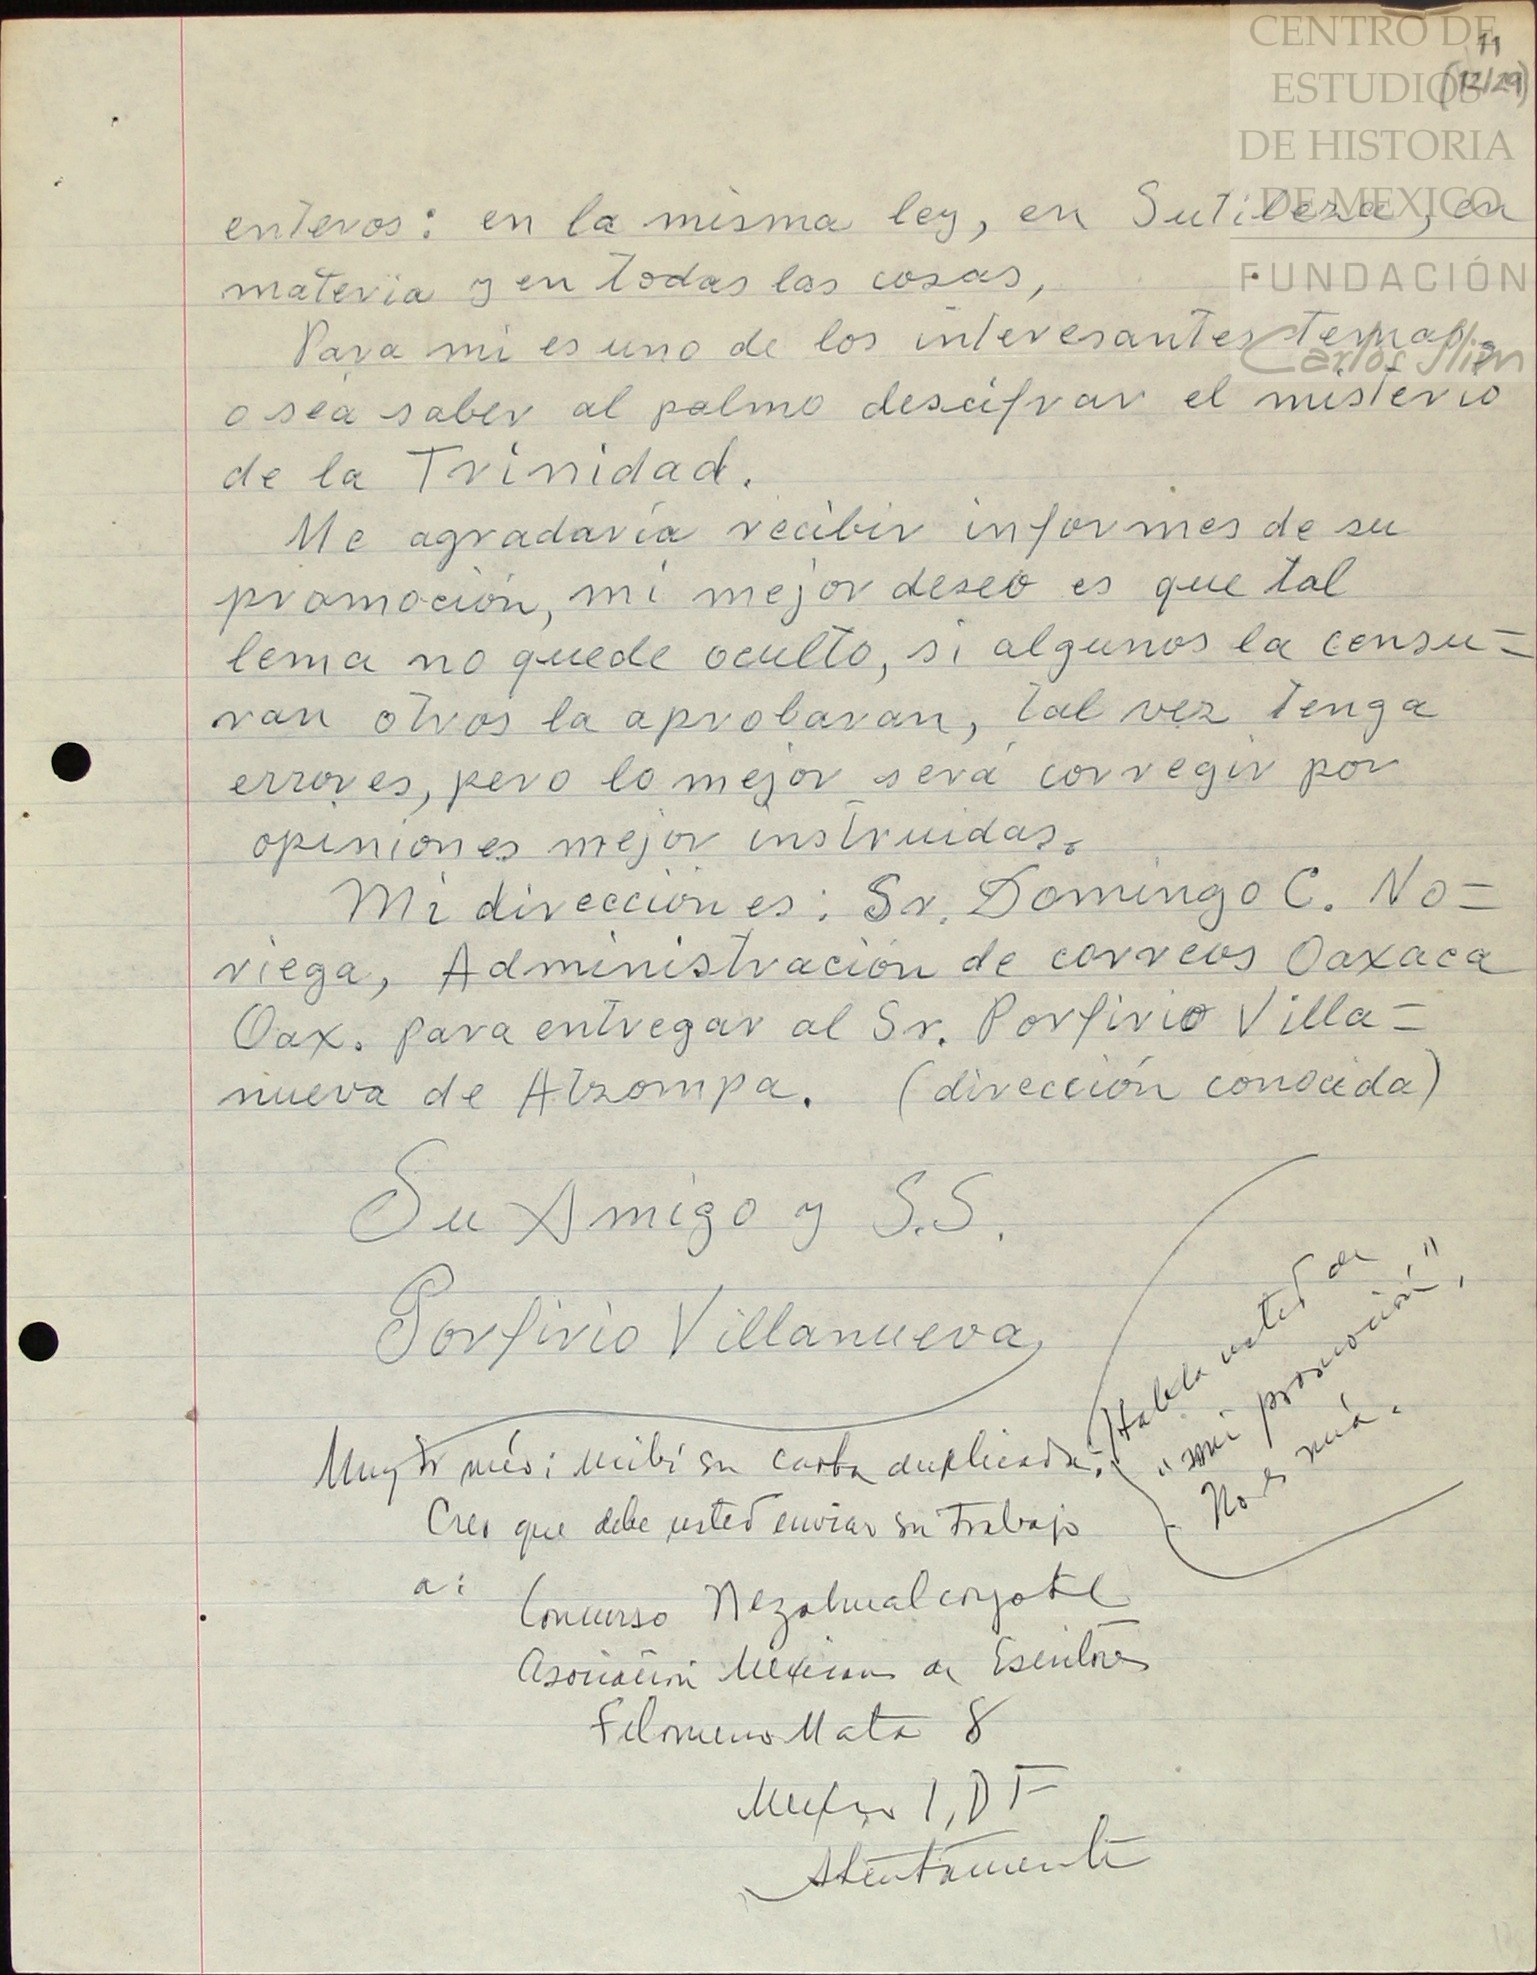 CENTRO DE
ESTUDIOS
DE HISTORIA
DE MEXICO
FUNDACIÓN
Carlos Slim
11
(12/29)
enteros: en la misma ley, en Sutileza, en
materia y en todas las cosas,
Para mi es uno de los interesantes temas,
o sea saber al palmo descifrar el misterio
de la Trinidad.
Me agradaría recibir informes de su
promoción, mi mejor deseo es que tal
lema no quede oculto, si algunos la censu=
ran otros la aprobaran, tal vez tenga
errores, pero lo mejor será corregir por
opiniones mejor instruidas.
Mi dirección es: Sr. Domingo C. No=
riega, Administración de correos Oaxaca
Oax. para entregar al Sr. Porfirio Villa=
nueva de Atzompa. (dirección conocida)
Su Amigo y S.S.
Porfirio Villanueva
Muy Sr mío: recibí su carta duplicada.
Habla usted de
"mi promoción,"
No es mía.
Creo que debe usted enviar su trabajo
a:
Concurso Nezahualcoyotl
Asociación Mexicana de Escritores
Filomeno Mata 8
Mexico 1, D F
Atentamente